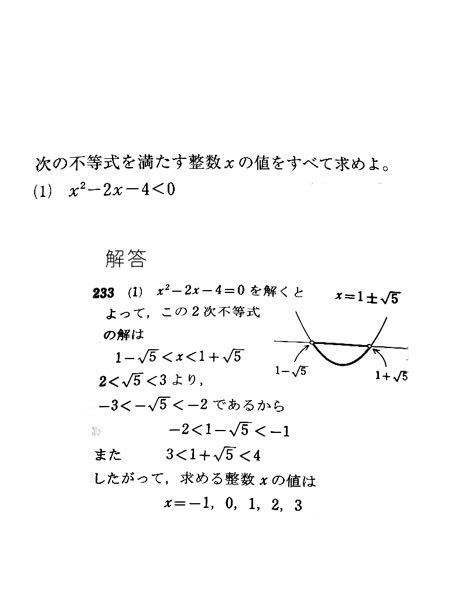 次の不等式を満たす整数xの値をすべて求めよ。
(1) x²−2x−4<0
解答
233 (1) x²−2x−4=0 を解くと x=1±√5
よって，この2次不等式
の解は
1−√5<x<1+√5
1−√5
1+√5
2<√5<3 より，
−3<−√5<−2 であるから
−2<1−√5<−1
また 3<1+√5<4
したがって，求める整数xの値は
x=−1, 0, 1, 2, 3